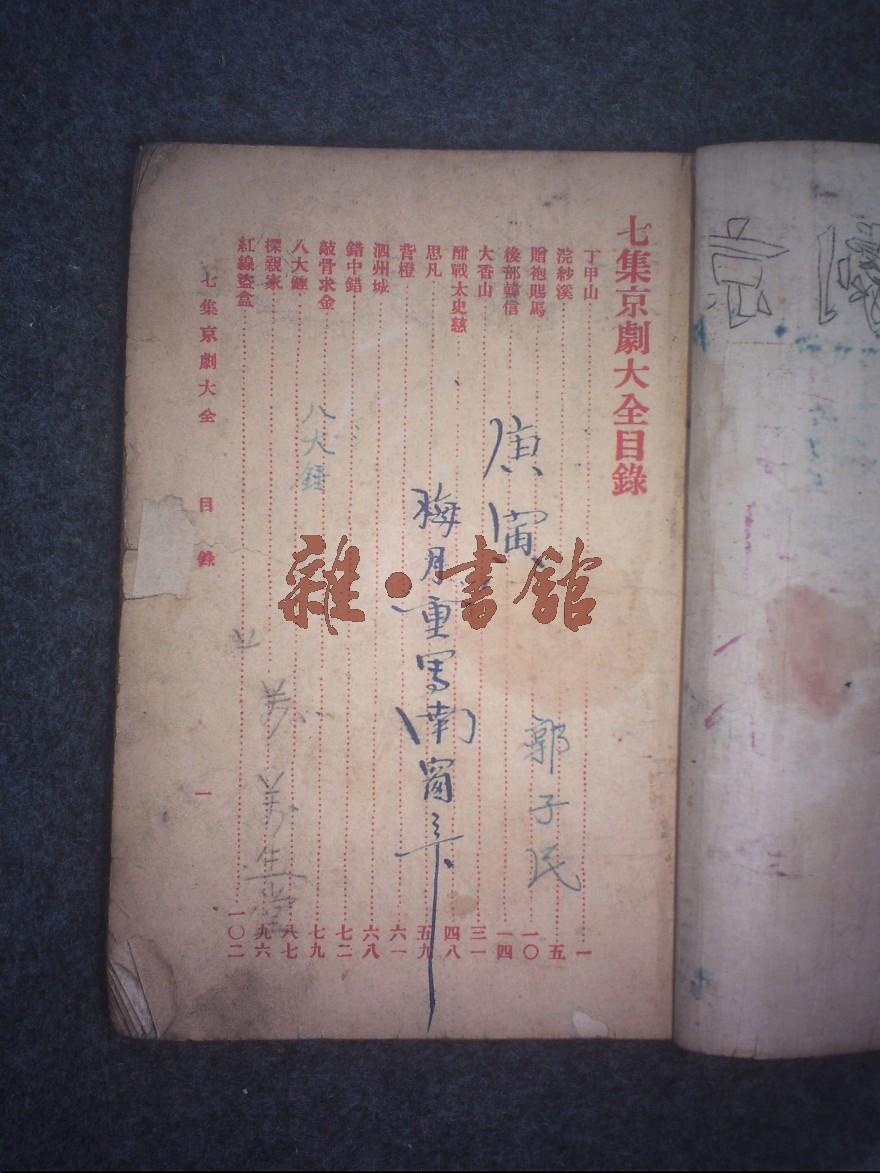 七集京劇大全目錄
丁甲山 一
浣紗溪 五
贈袍賜馬 一〇
後部韓信 一四
大香山 三一
酣戰太史慈 四八
思凡 五九
背橙 六一
泗州城 六八
錯中錯 七二
敲骨求金 七九
八大錘 八七
探親家 九六
紅線盜盒 一〇二
七集京劇大全 目錄 一
庚寅
梅月重写南窗
郭子民
八大錘
雜·書館
京